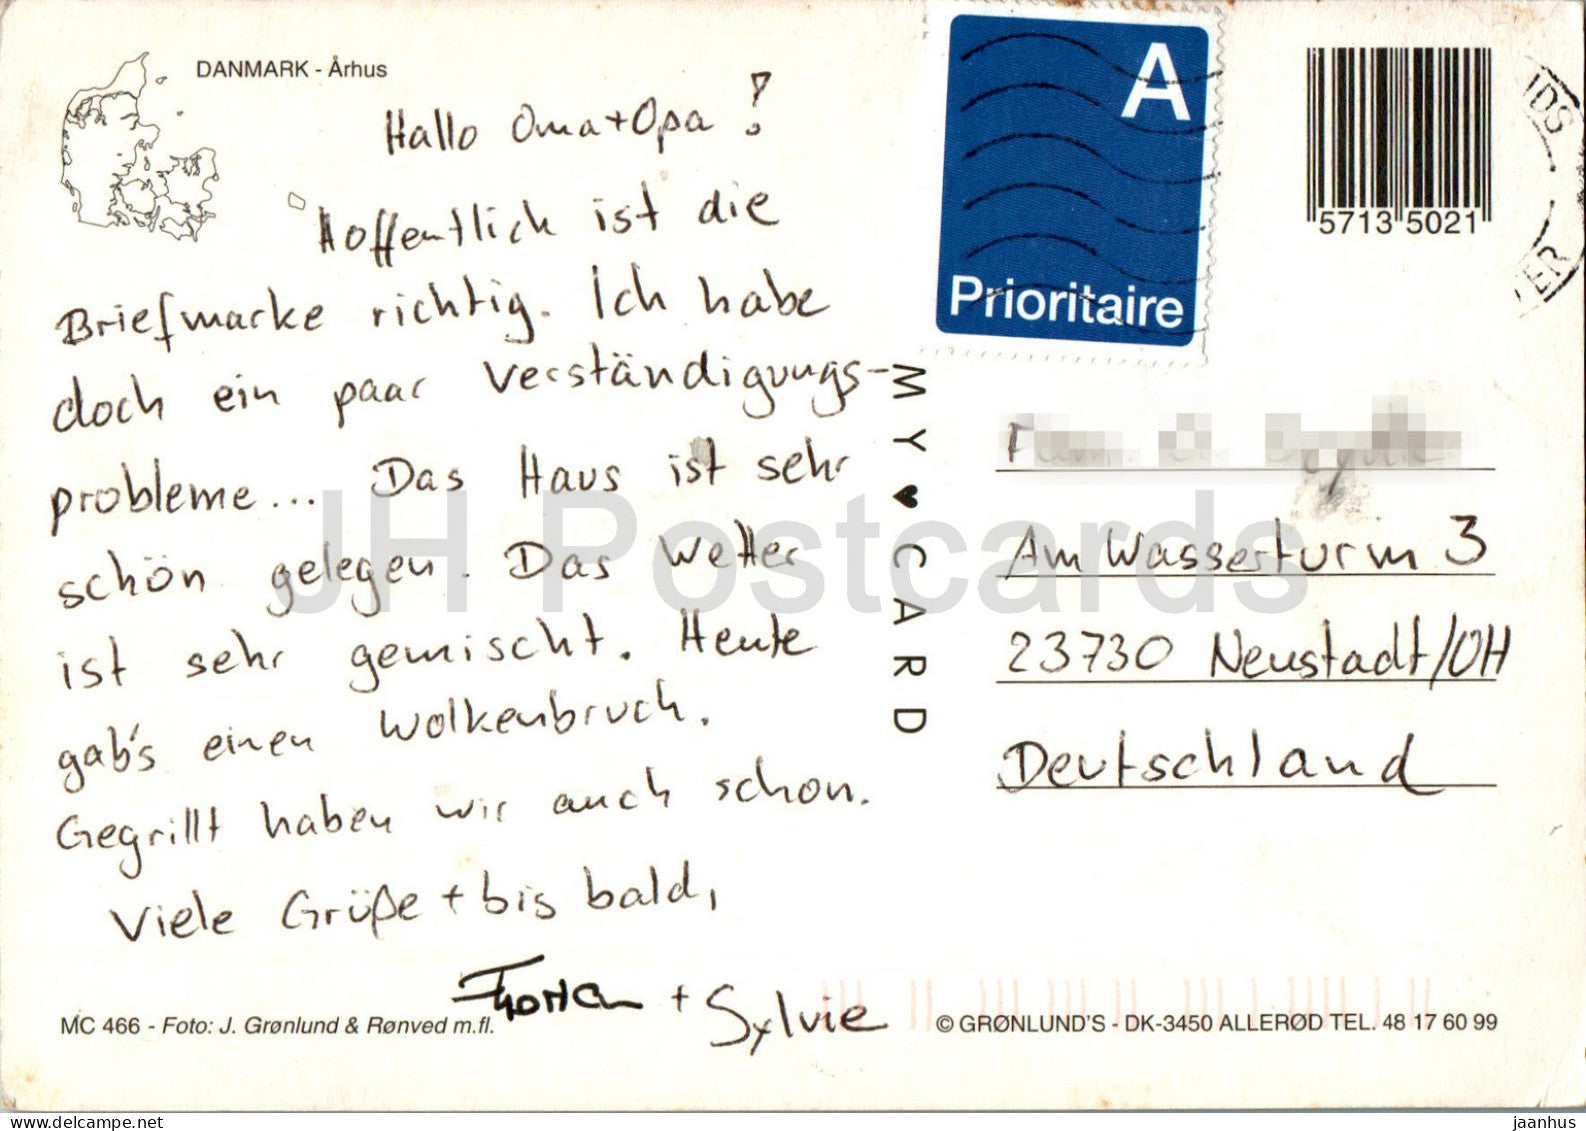 DANMARK - Århus
Hallo Oma+Opa!
Hoffentlich ist die
Briefmarke richtig. Ich habe
doch ein paar Verständigungs-
probleme... Das Haus ist sehr
schön gelegen. Das Wetter
ist sehr gemischt. Heute
gab's einen Wolkenbruch.
Gegrillt haben wir auch schon.
Viele Grüße + bis bald,
+ Sylvie
MC 466 - Foto: J. Grønlund & Rønved m.fl.
MY ♥ CARD
A
Prioritaire
5713 5021
Am Wasserturm 3
23730 Neustadt/OH
Deutschland
© GRØNLUND'S - DK-3450 ALLERØD TEL. 48 17 60 99
JH Postcards
delcampe.net
jaanhus